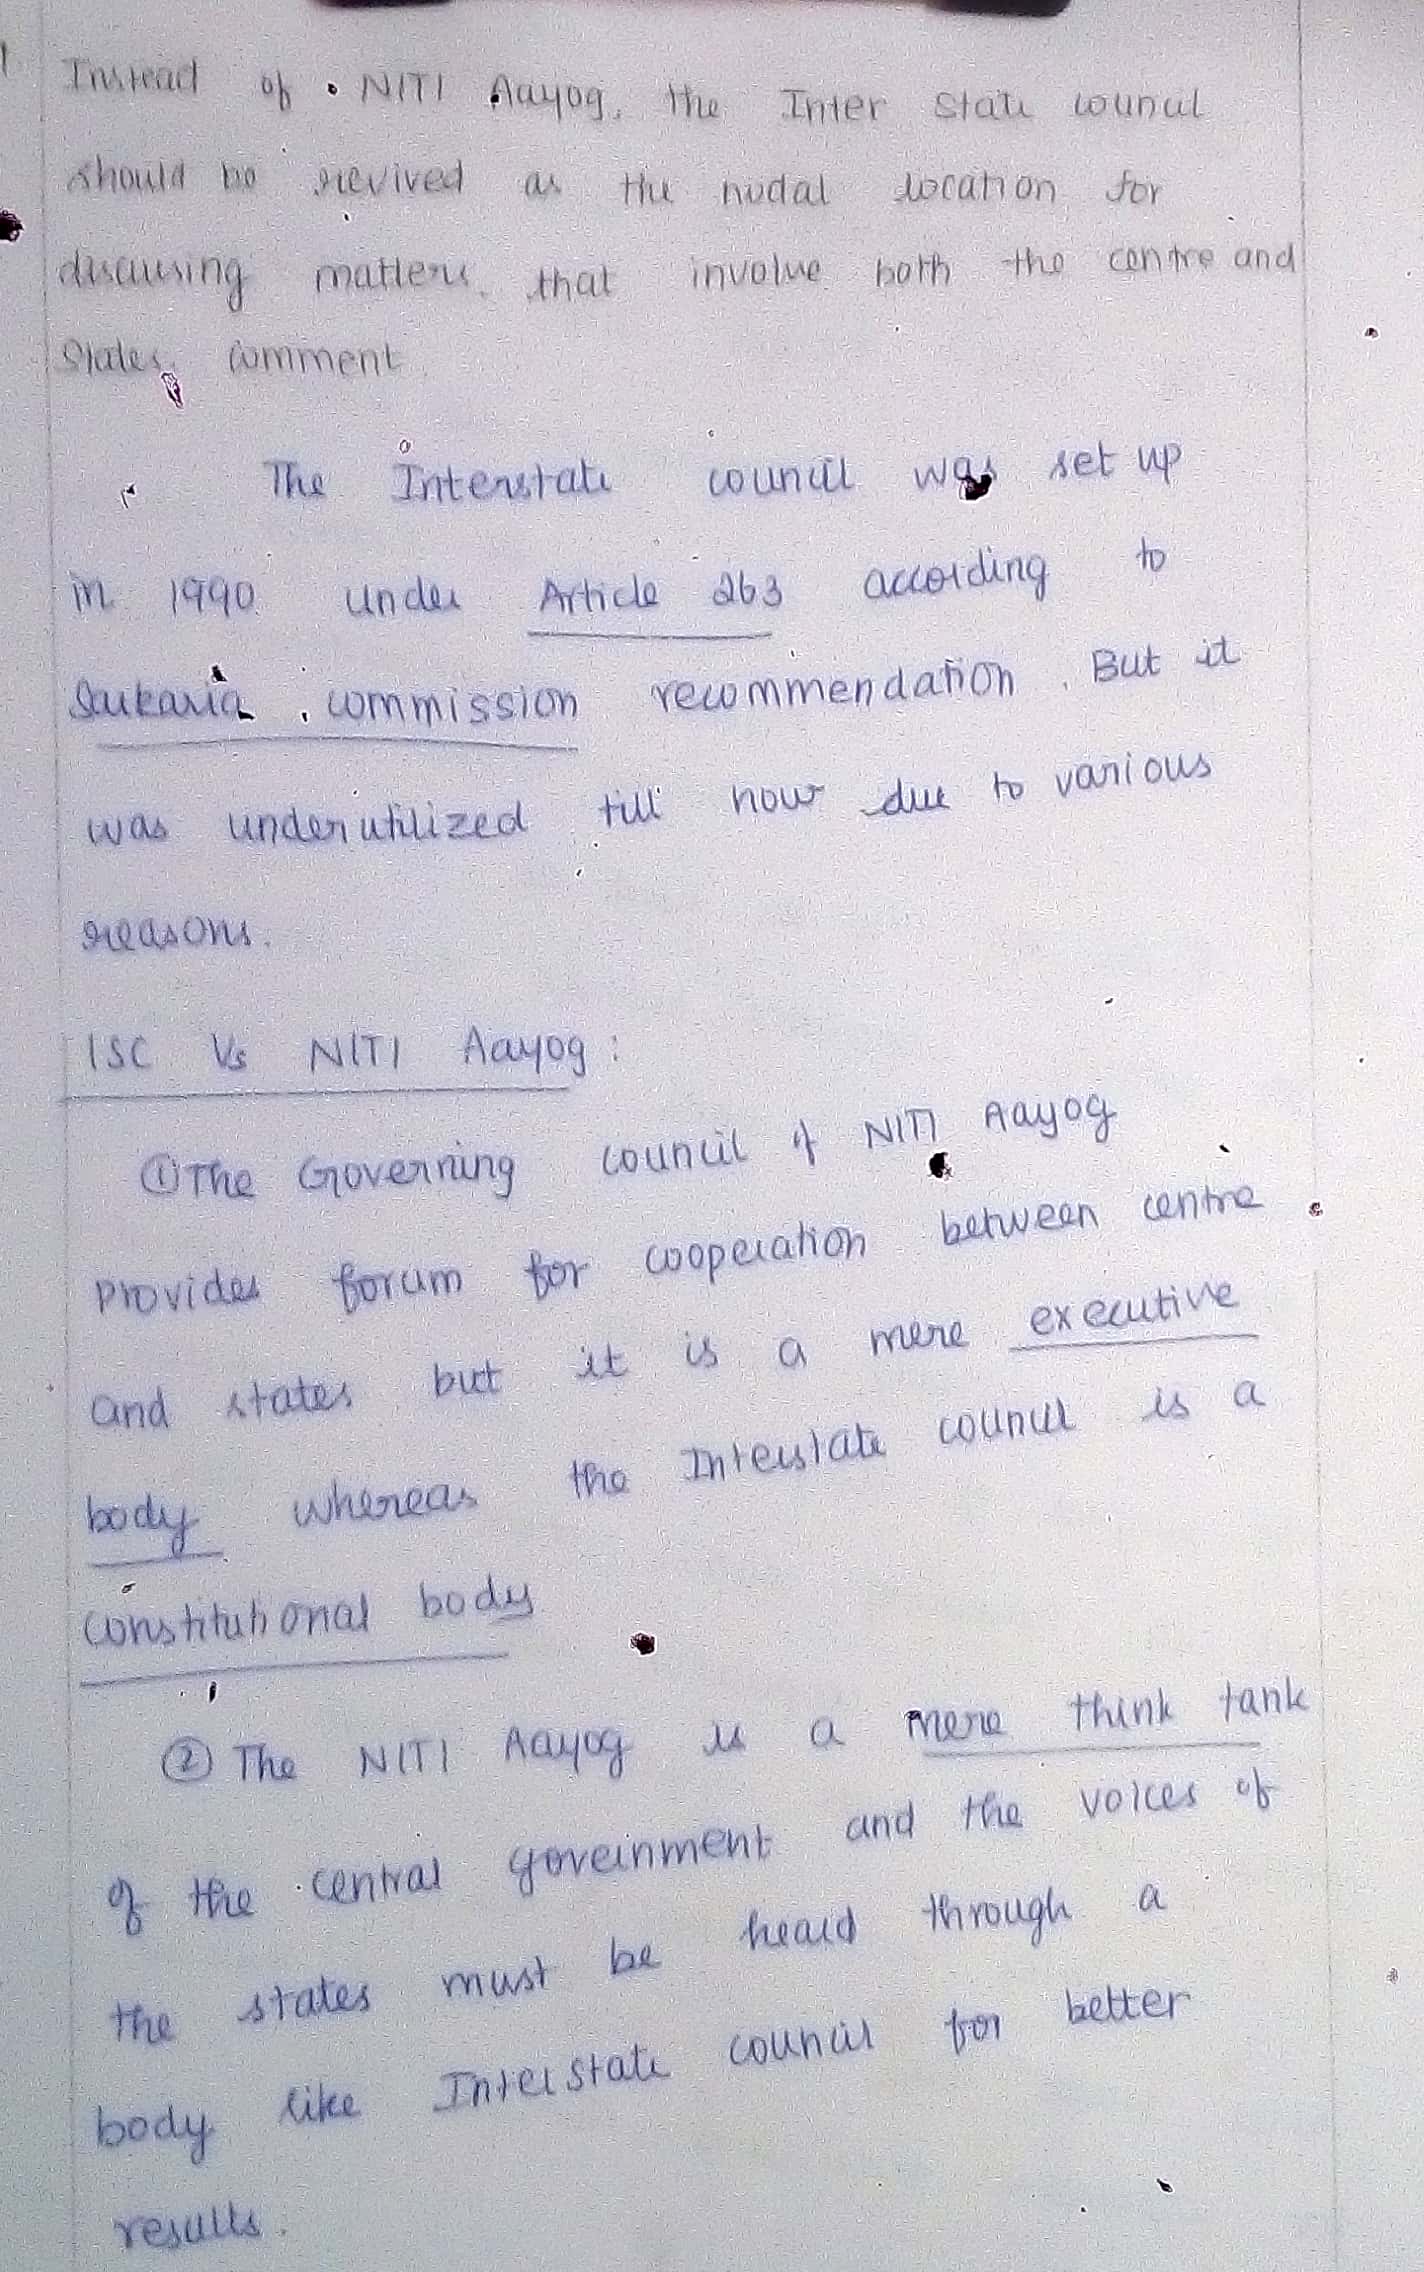 1 Instead of NITI Aayog, the Inter State council
should be revived as the nodal location for
discussing matters that involve both the centre and
States. Comment
The Interstate council was set up
in 1990 under Article 263 according to
Sarkaria commission recommendation. But it
was underutilized till now due to various
reasons.
ISC Vs NITI Aayog:
① The Governing council of NITI Aayog
provides forum for cooperation between centre
and states but it is a mere executive
body whereas the Interstate council is a
constitutional body
② The NITI Aayog is a mere think tank
of the central government and the voices of
the states must be heard through a
body like Interstate council for better
results.